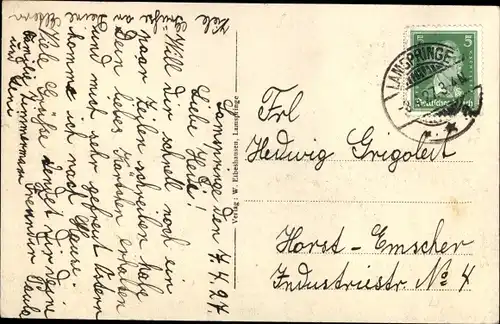 Lamspringe den 7.4.27.
Liebe Hede!
Will dir schnell noch ein
paar Zeilen schreiben habe
Dein liebes Kärtchen erhalten
und mich sehr gefreut Ostern
komme ich nach Hause.
Viele Grüße sendet dir deine
Freundin Paula
Viele Grüße an deine Eltern
und
Verlag: W. Eibeshausen, Lamspringe
LAMSPRINGE
5
Deutsches Reich
Frl
Hedwig Grigoleit
Horst-Emscher
Industriestr No 4